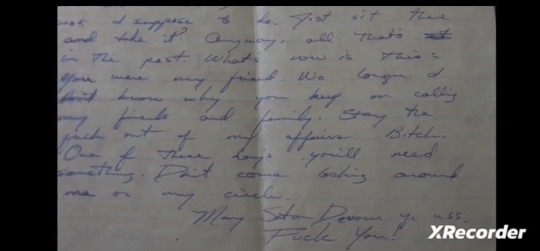 was I suppose to do. Just sit there
and take it? Anyway, all that's
in the past. What's now is this:
You were my friend. No longer. I
don't know why you keep on calling
my friends and family. Stay the
fuck out of my affairs. Bitch.
One of these day's you'll need
something. Don't come looking around
me or my circle.
May Satan Devour yr ass.
Fuck You!
XRecorder